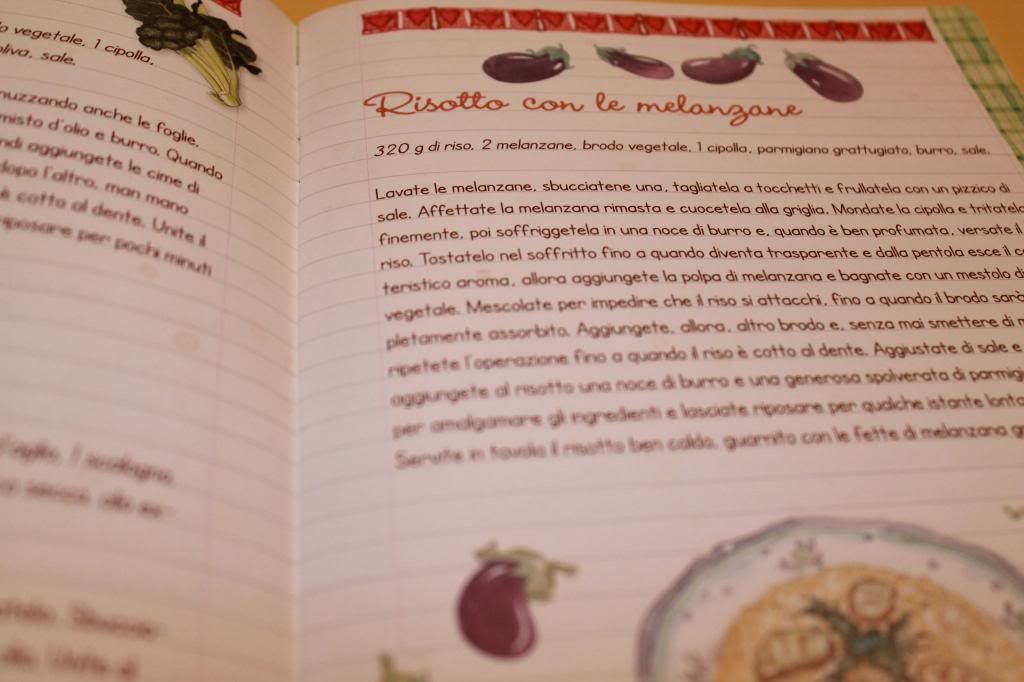 vegetale, 1 cipolla,
oliva, sale.
nuzzando anche le foglie,
misto d'olio e burro. Quando
ndi aggiungete le cime di
dopo l'altro, man mano
è cotto al dente. Unite il
riposare per pochi minuti
Risotto con le melanzane
320 g di riso, 2 melanzane, brodo vegetale, 1 cipolla, parmigiano grattugiato, burro, sale.
Lavate le melanzane, sbucciatene una, tagliatela a tocchetti e frullatela con un pizzico di
sale. Affettate la melanzana rimasta e cuocetela alla griglia. Mondate la cipolla e tritatela
finemente, poi soffriggetela in una noce di burro e, quando è ben profumata, versate il
riso. Tostatelo nel soffritto fino a quando diventa trasparente e dalla pentola esce il c
teristico aroma, allora aggiungete la polpa di melanzana e bagnate con un mestolo di
vegetale. Mescolate per impedire che il riso si attacchi, fino a quando il brodo sarà
pletamente assorbito. Aggiungete, allora, altro brodo e, senza mai smettere di
ripetete l'operazione fino a quando il riso è cotto al dente. Aggiustate di sale e
aggiungete al risotto una noce di burro e una generosa spolverata di parmigi
per amalgamare gli ingredienti e lasciate riposare per qualche istante lonta
Servite in tavola il risotto ben caldo, guarnito con le fette di melanzana